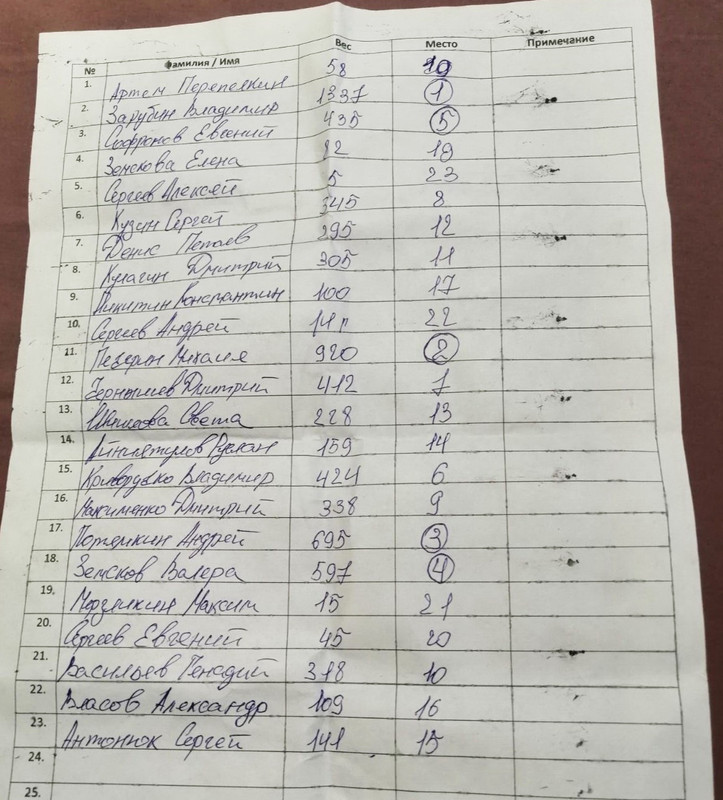 № Фамилия / Имя Вес Место Примечание
1. Артем Перепелкин 58 19
2. Зарубин Владимир 1337 1
3. Софронов Евгений 435 5
4. Земскова Елена 82 18
5. Сергеев Алексей 5 23
6. Кузин Сергей 345 8
7. Денис 295 12
8. Кулагин Дмитрий 305 11
9. Никитин Константин 100 17
10. Сергеев Андрей 22
11. Михаил 920 2
12. Чернышев Дмитрий 412 7
13. Света 228 13
14. Руслан 159 14
15. Владимир 424 6
16. Максименко Дмитрий 338 9
17. Потемкин Андрей 695 3
18. Земсков Валера 597 4
19. Максим 15 21
20. Сергеев Евгений 45 20
21. Васильев Генадий 318 10
22. Власов Александр 109 16
23. Антонюк Сергей 141 15
24.
25.